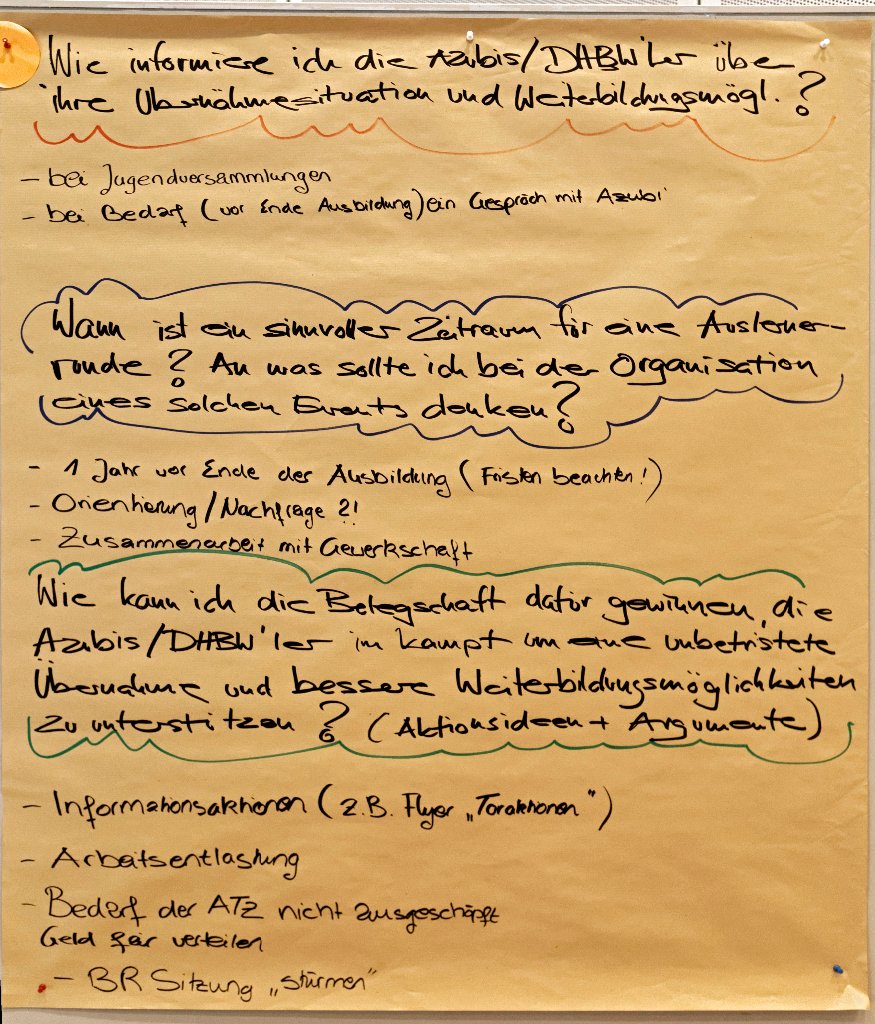 Wie informiere ich die Azubis/DHBW'ler über
ihre Übernahmesituation und Weiterbildungsmögl.?
- bei Jugendversammlungen
- bei Bedarf (vor Ende Ausbildung) ein Gespräch mit Azubi
Wann ist ein sinnvoller Zeitraum für eine Auslerner-
runde? An was sollte ich bei der Organisation
eines solchen Events denken?
- 1 Jahr vor Ende der Ausbildung (Fristen beachten!)
- Orientierung/Nachfrage ?!
- Zusammenarbeit mit Gewerkschaft
Wie kann ich die Belegschaft dafür gewinnen, die
Azubis/DHBW'ler im Kampf um eine unbefristete
Übernahme und bessere Weiterbildungsmöglichkeiten
zu unterstützen? (Aktionsideen + Argumente)
- Informationsaktionen (z.B. Flyer „Toraktionen")
- Arbeitsentlastung
- Bedarf der ATZ nicht ausgeschöpft
Geld fair verteilen
- BR Sitzung „stürmen"